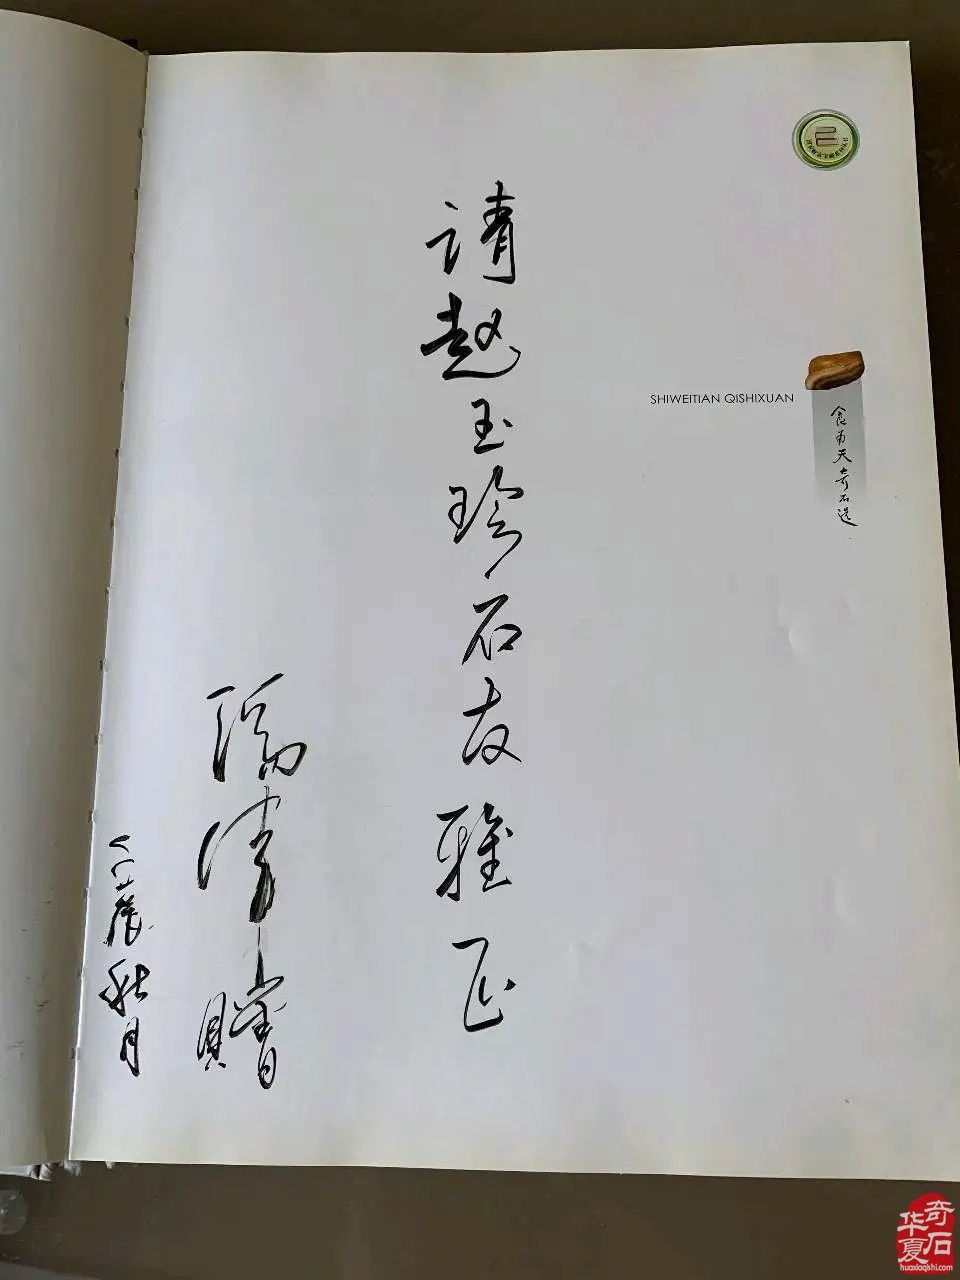 SHIWEITIAN QISHIXUAN
食为天奇石选
请赵玉珍石友雅正
清贈
秋月
华夏奇石
huaxiaqishi.com